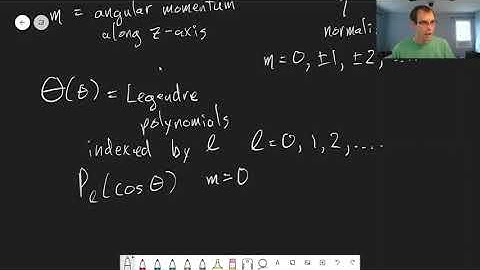 m = angular momentum
along z-axis
normali
m = 0, ±1, ±2, ....
Θ(θ) = Legendre
polynomials
indexed by l l = 0, 1, 2, ....
Pₗ(cos θ) m = 0